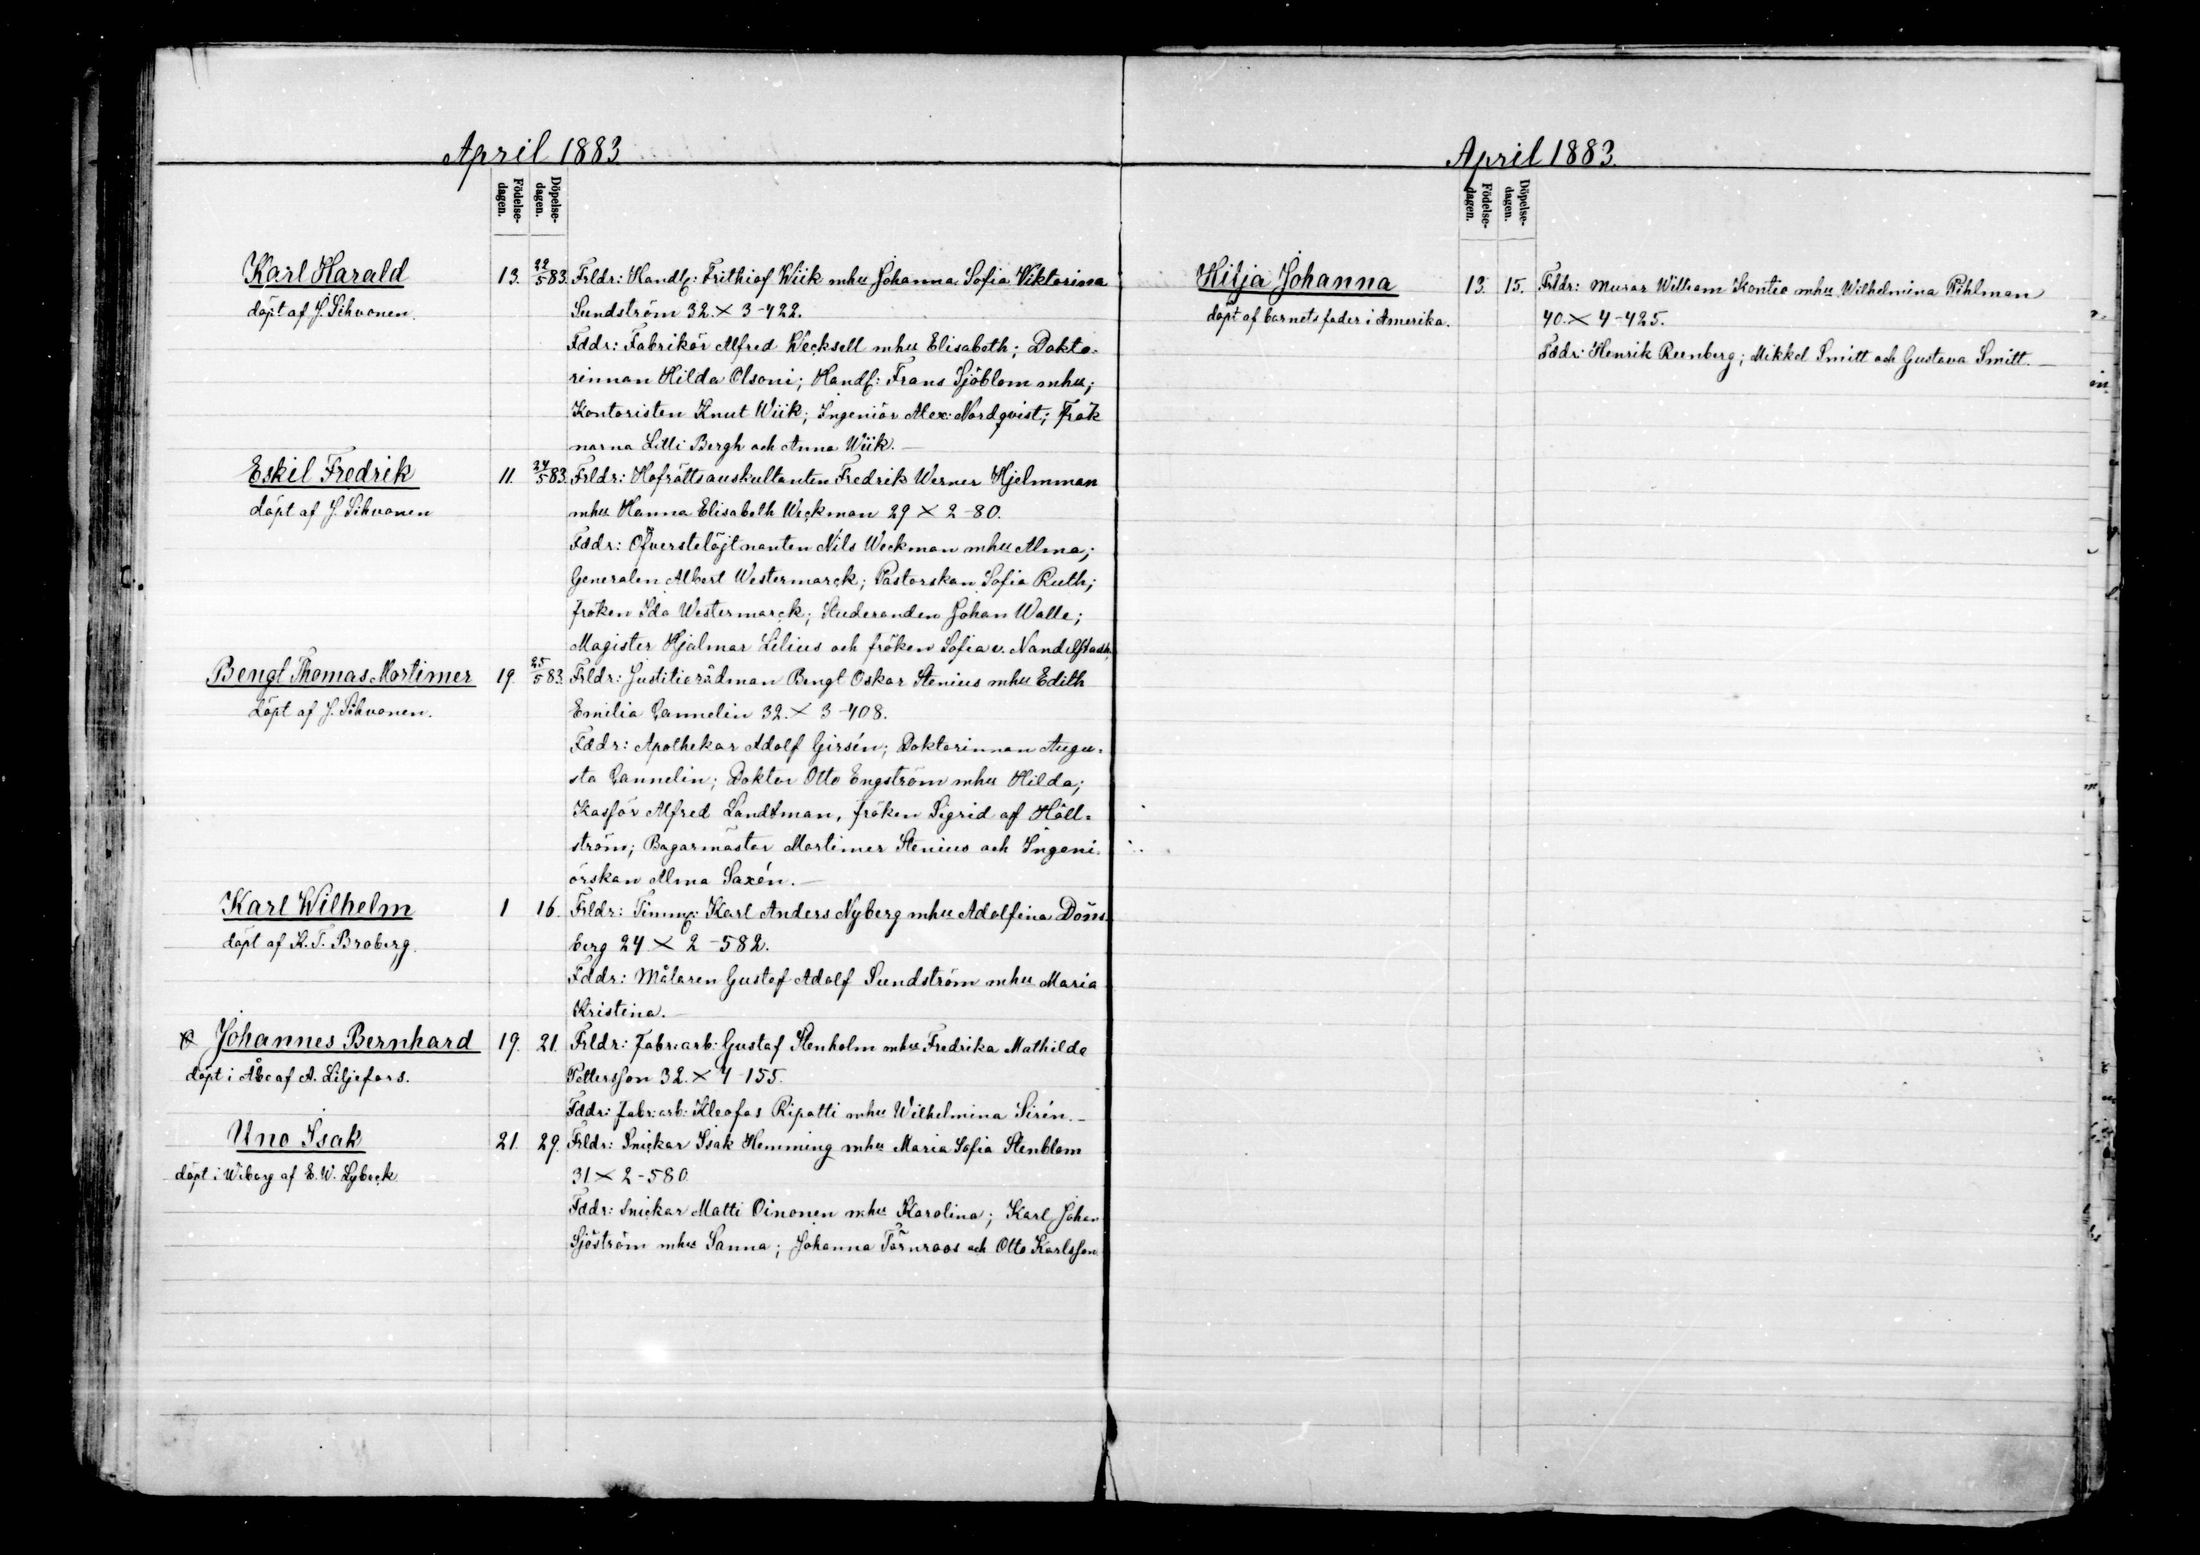 April 1883
Födelse-
dagen.
Döpelse-
dagen.
Karl Harald 13. 22/5 83. Frldr: Handl: Frithiof Wiik mhu Johanna Sofia Viktorina
döpt af J. Sihvonen. Sundström 32. × 3-422.
Fddr: Fabrikör Alfred Wecksell mhu Elisabeth; Dokto-
rinnan Hilda Olsoni; Handl: Frans Sjöblom mhu;
Kontoristen Knut Wiik; Ingeniör Alex: Nordqvist; Frök
narna Lilli Bergh och Anna Wiik.—
Eskil Fredrik 11. 24/5 83. Frldr: Hofrättsauskultanten Fredrik Werner Hjelmman
döpt af J. Sihvonen mhu Hanna Elisabeth Weckman 29 × 2-80.
Fddr: Öfverstelöjtnanten Nils Weckman mhu Alma;
Generalen Albert Westermarck; Pastorskan Sofia Ruth;
fröken Ida Westermarck; Studeranden Johan Walle;
Magister Hjalmar Lilius och fröken Sofia v. Nandelstadh.
Bengt Thomas Mortimer 19. 25/5 83. Frldr: Justitierådman Bengt Oskar Stenius mhu Edith
döpt af J. Sihvonen. Emilia Cannelin 32. × 3-408.
Fddr: Apothekar Adolf Girsén; Doktorinnan Augu-
sta Cannelin; Doktor Otto Engström mhu Hilda;
Kassör Alfred Landtman, fröken Sigrid af Häll-
ström; Bagarmästar Mortimer Stenius och Ingeni-
örskan Alma Saxén.—
Karl Wilhelm 1 16. Frldr: Timmr: Karl Anders Nyberg mhu Adolfina Döns-
döpt af K. T. Broberg. berg 24 × 2-582.
Fddr: Målaren Gustaf Adolf Sundström mhu Maria
Kristina.—
Johannes Bernhard 19. 21. Frldr: Fabr: arb: Gustaf Stenholm mhu Fredrika Mathilda
döpt i Åbo af A. Liljefors. Pettersson 32. × 4-155.
Fddr: Fabr: arb: Kleofas Ripatti mhu Wilhelmina Sirén.—
Uno Isak 21. 29. Frldr: Snickar Isak Hemming mhu Maria Sofia Stenblom
döpt i Wiborg af E. W. Lybeck 31 × 2-580
Fddr: Snickar Matti Oinonen mhu Karolina; Karl Johan
Sjöström mhu Sanna; Johanna Törnroos och Otto Karlsson
April 1883.
Födelse-
dagen.
Döpelse-
dagen.
Hilja Johanna 13. 15. Frldr: Murar William Kontio mhu Wilhelmina Pihlman
döpt af barnets fader i Amerika. 40. × 4-425.
Fddr: Henrik Reenberg; Mikkel Smitt och Gustava Smitt.—